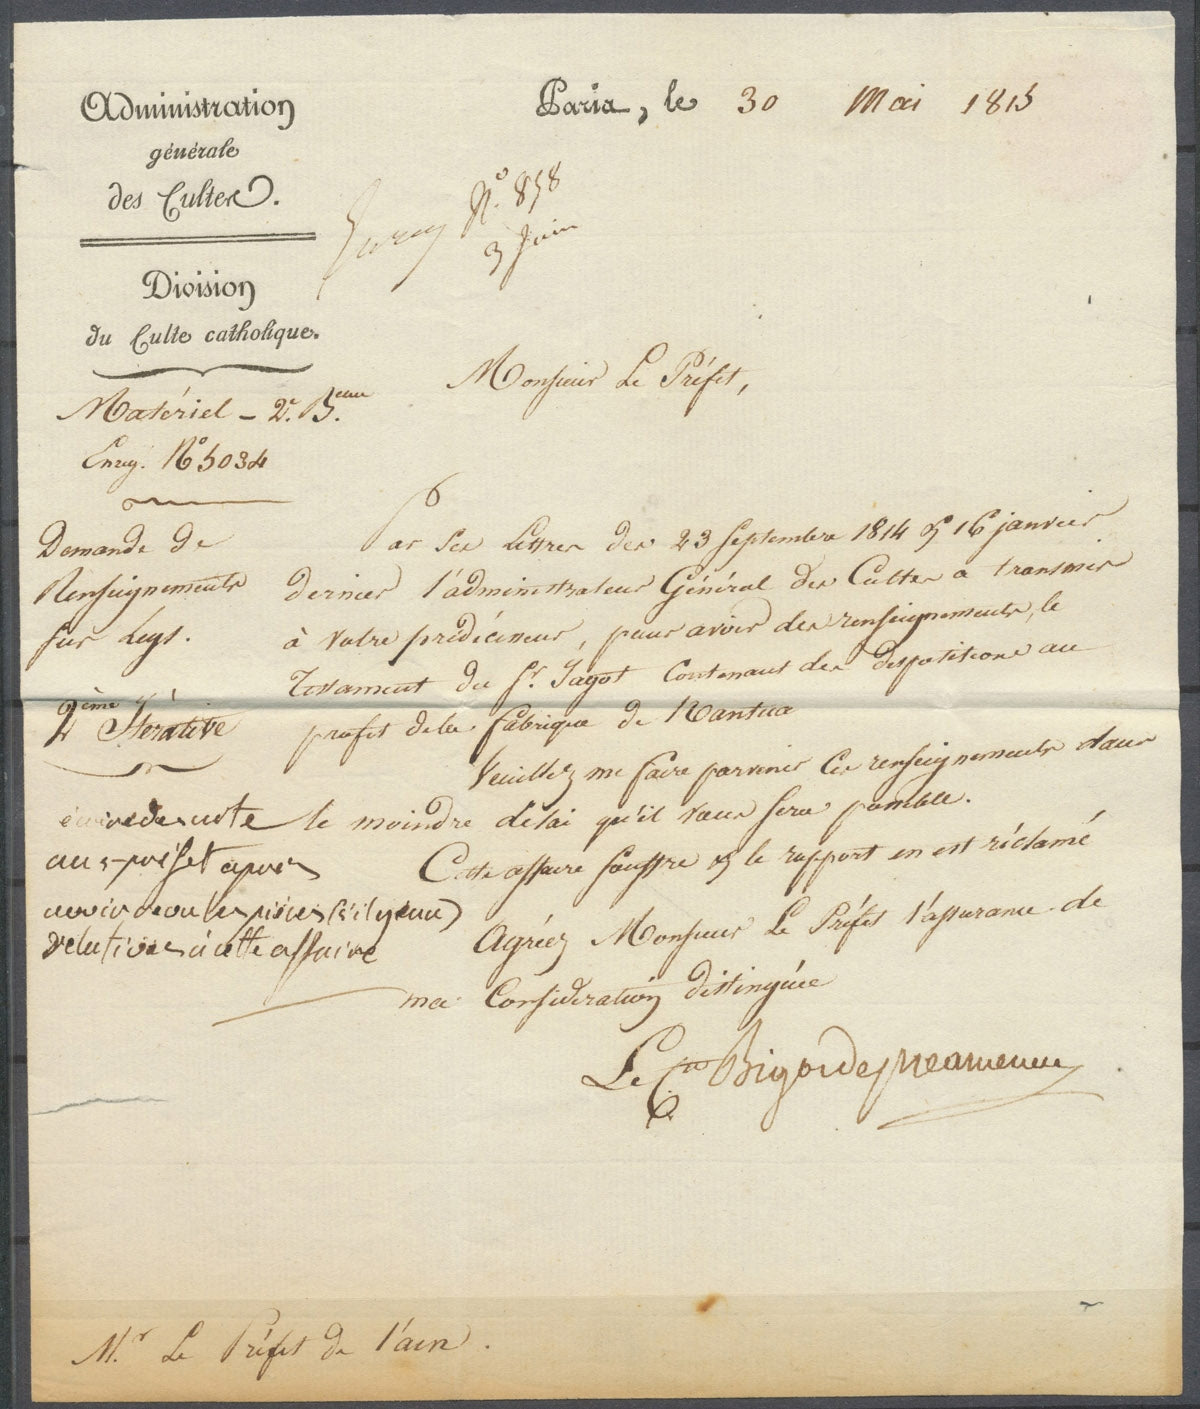 Administration
générale
des Cultes.
Division
du Culte catholique.
Matériel - 2e. Beau.
Enreg. No 5034
Demande de
Renseignements
sur Legs.
2ème Itérative
écrire de suite
au s-préfet après
avoir revu les pièces (s'il y en a)
relatives à cette affaire
Paris, le 30 Mai 1815
Enreg No. 858
3 Juin
Monsieur Le Préfet,
Par ses Lettres des 23 Septembre 1814 & 16 janvier
dernier l'administrateur Général des Cultes a transmis
à votre prédécesseur, pour avoir des renseignements, le
Testament du Sr. Jagot contenant des dispositions au
profit de la fabrique de Nantua
Veuillez me faire parvenir ces renseignements dans
le moindre délai qu'il vous sera possible.
Cette affaire souffre & le rapport en est réclamé
Agréez Monsieur Le Préfet l'assurance de
ma Considération distinguée
Le Cte Bigot de préameneu
Mr. Le Préfet de l'ain.